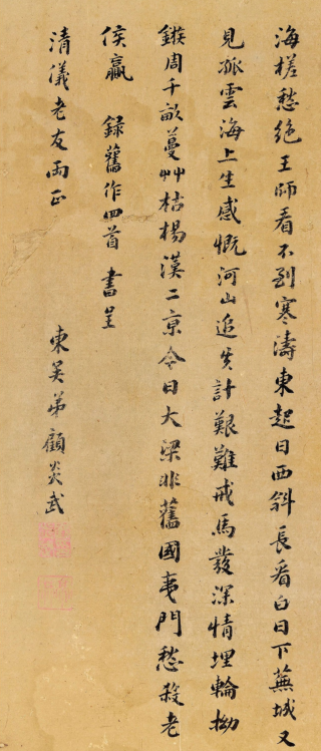 海槎愁绝王師看不到寒濤東起日西斜長看白日下蕪城又
見孤雲海上生感慨河山追失計艱難戎馬發深情埋輪拗
鏃周千畝蔓艸枯楊漢二京今日大梁非舊國夷門愁殺老
侯嬴 録舊作四首 書呈
清儀老友兩正
東吴弟顧炎武